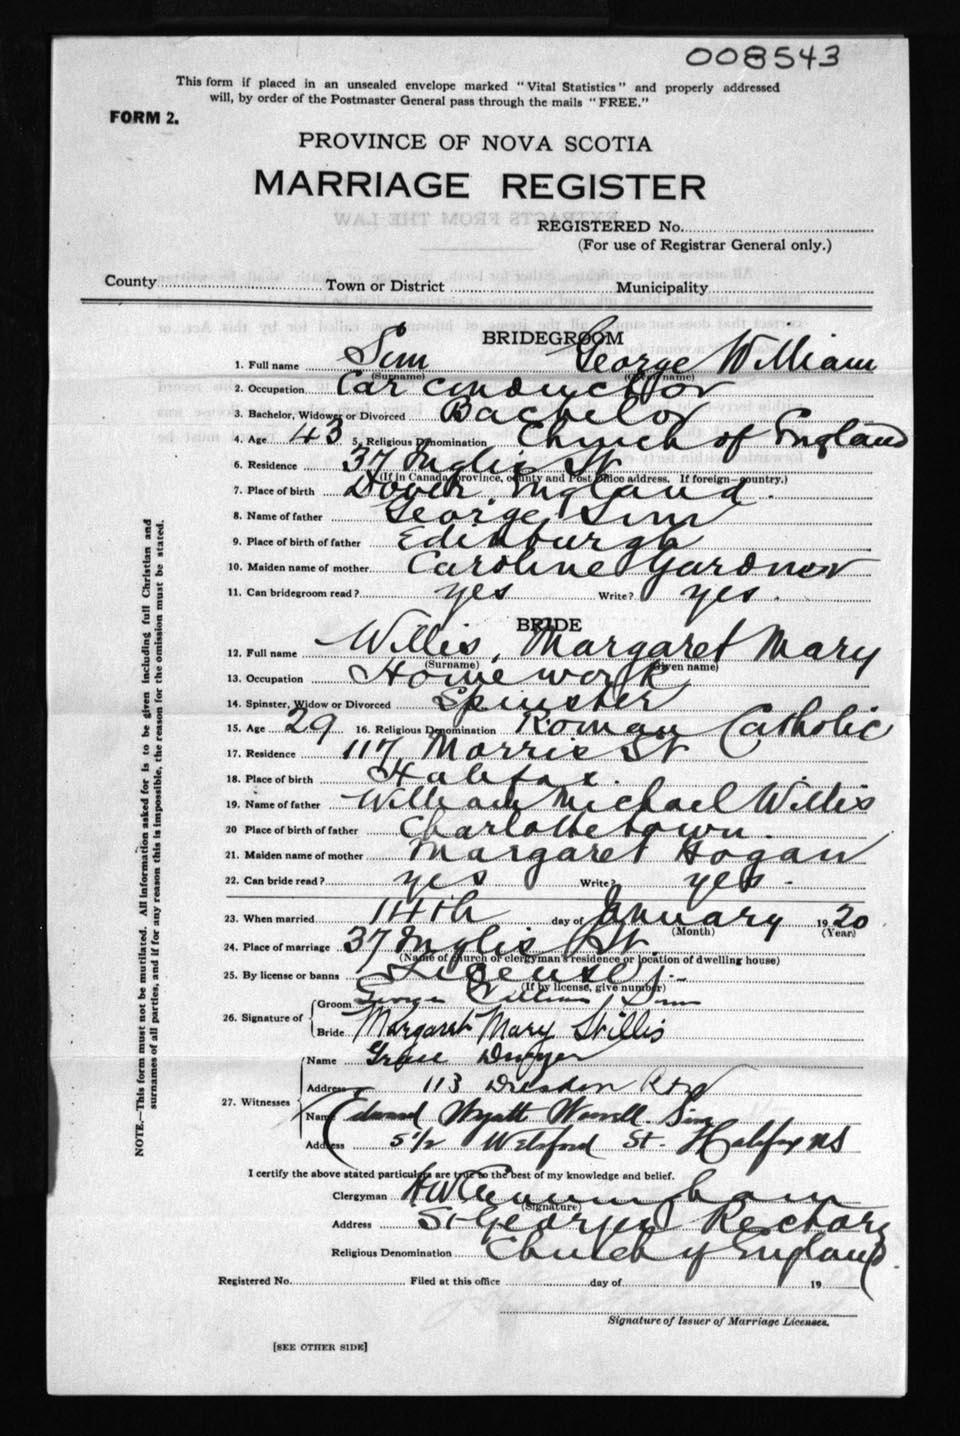 008543
This form if placed in an unsealed envelope marked "Vital Statistics" and properly addressed
will, by order of the Postmaster General pass through the mails "FREE."
FORM 2.
PROVINCE OF NOVA SCOTIA
MARRIAGE REGISTER
EXTRACTS FROM THE LAW
REGISTERED No.
(For use of Registrar General only.)
County Town or District Municipality
BRIDEGROOM
1. Full name Sim George William
(Surname) (Given name)
2. Occupation Car conductor
3. Bachelor, Widower or Divorced Bachelor
4. Age 43 5. Religious Denomination Church of England
6. Residence 37 Inglis St
(If in Canada province, county and Post Office address. If foreign—country.)
7. Place of birth Dover England.
8. Name of father George Sim
9. Place of birth of father Edinburgh
10. Maiden name of mother Caroline Gardner
11. Can bridegroom read? yes Write? yes.
BRIDE
12. Full name Willis, Margaret Mary
(Surname) (Given name)
13. Occupation Home work
14. Spinster, Widow or Divorced Spinster
15. Age 29 16. Religious Denomination Roman Catholic
17. Residence 117 Morris St
18. Place of birth Halifax.
19. Name of father William Michael Willis
20 Place of birth of father Charlottetown.
21. Maiden name of mother Margaret Hogan
22. Can bride read? yes Write? yes.
23. When married 14th day of January 1920
(Month) (Year)
24. Place of marriage 37 Inglis St
(Name of church or clergyman's residence or location of dwelling house)
25. By license or banns License
(If by license, give number)
26. Signature of Groom George William Sim
Bride Margaret Mary Willis
27. Witnesses Name Grace
Address 113 Dresden Row
Name Edward Wyatt Sim
Address 51/2 Welsford St. Halifax NS
I certify the above stated particulars are true to the best of my knowledge and belief.
Clergyman H W Cunningham
(Signature)
Address St George's Rectory
Religious Denomination Church of England.
Registered No. Filed at this office day of 19
Signature of Issuer of Marriage Licenses.
[SEE OTHER SIDE]
NOTE.—This form must not be mutilated. All information asked for is to be given including full Christian and
surnames of all parties, and if for any reason this is impossible, the reason for the omission must be stated.